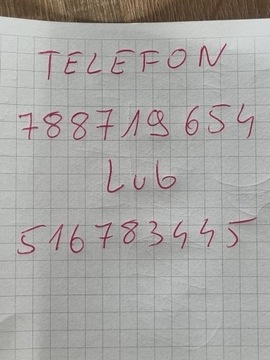 TELEFON
788719654
Lub
516783445